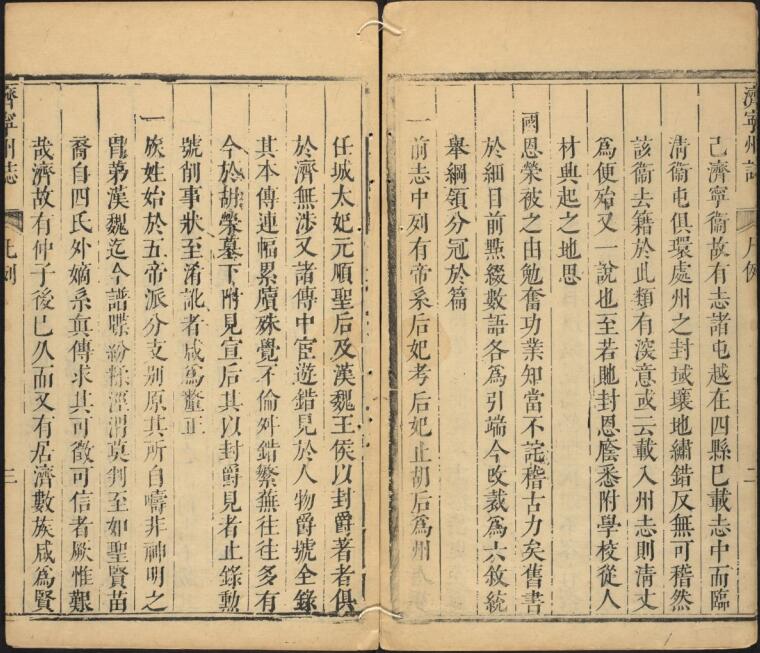 濟寧州志
凡例
二
己濟寧衞故有志諸屯越在四縣已載志中而臨
清衞屯俱環處州之封域壤地繡錯反無可稽然
該衞去籍於此類有深意或云載入州志則清丈
為便殆又一說也至若貤封恩廕悉附學校從人
材典起之地思
國恩榮被之由勉奮功業知當不詫稽古力矣舊書
於細目前㸃綴數語各為引端今改裁為六敘統
舉綱領分冠於篇
一前志中列有帝系后妃考后妃止胡后為州
任城太妃元順聖后及漢魏王侯以封爵著者俱
於濟無涉又諸傳中宦遊錯見於人物爵號全錄
其本傳連幅累牘殊覺不倫舛錯繁蕪往往多有
今於胡榮墓下附見宣后其以封爵見者止錄勳
號削事狀至淆訛者咸為釐正
一族姓始於五帝派分支别原其所自疇非神明之
胄第漢魏迄今譜喋紛糅涇渭莫判至如聖賢苗
裔自四氏外嫡系真傳求其可徵可信者厥惟艱
哉濟故有仲子後已久而又有居濟數族咸為賢
濟寧州志
凡例
三